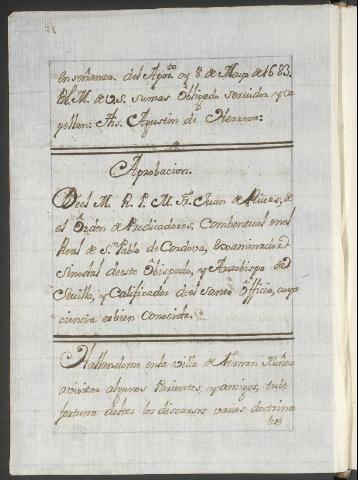 enseñanza del Apor.to oy 8 de Mayo de 1683.
Bl. M. de V.S. su mas Obligado servidor y Ca
pellan: Fr. Agustin de Herrera:
Aprobacion.
Deel M. R. P. M. Fr. Juan de Rivas, de
el Orden de Predicadores, Combentual en el
Real de S.n Pablo de Cordova, Examinador
Sinodal de este Obispado, y Arzobispo de
Sevilla, y Calificador del Santo Officio, cuya
ciencia es bien Conocida.
Hallendome en la villa de Hernan Nuñez
a visitar algunos Parientes, y amigos, tube
fortuna de ber los discursos varios doctrina
les